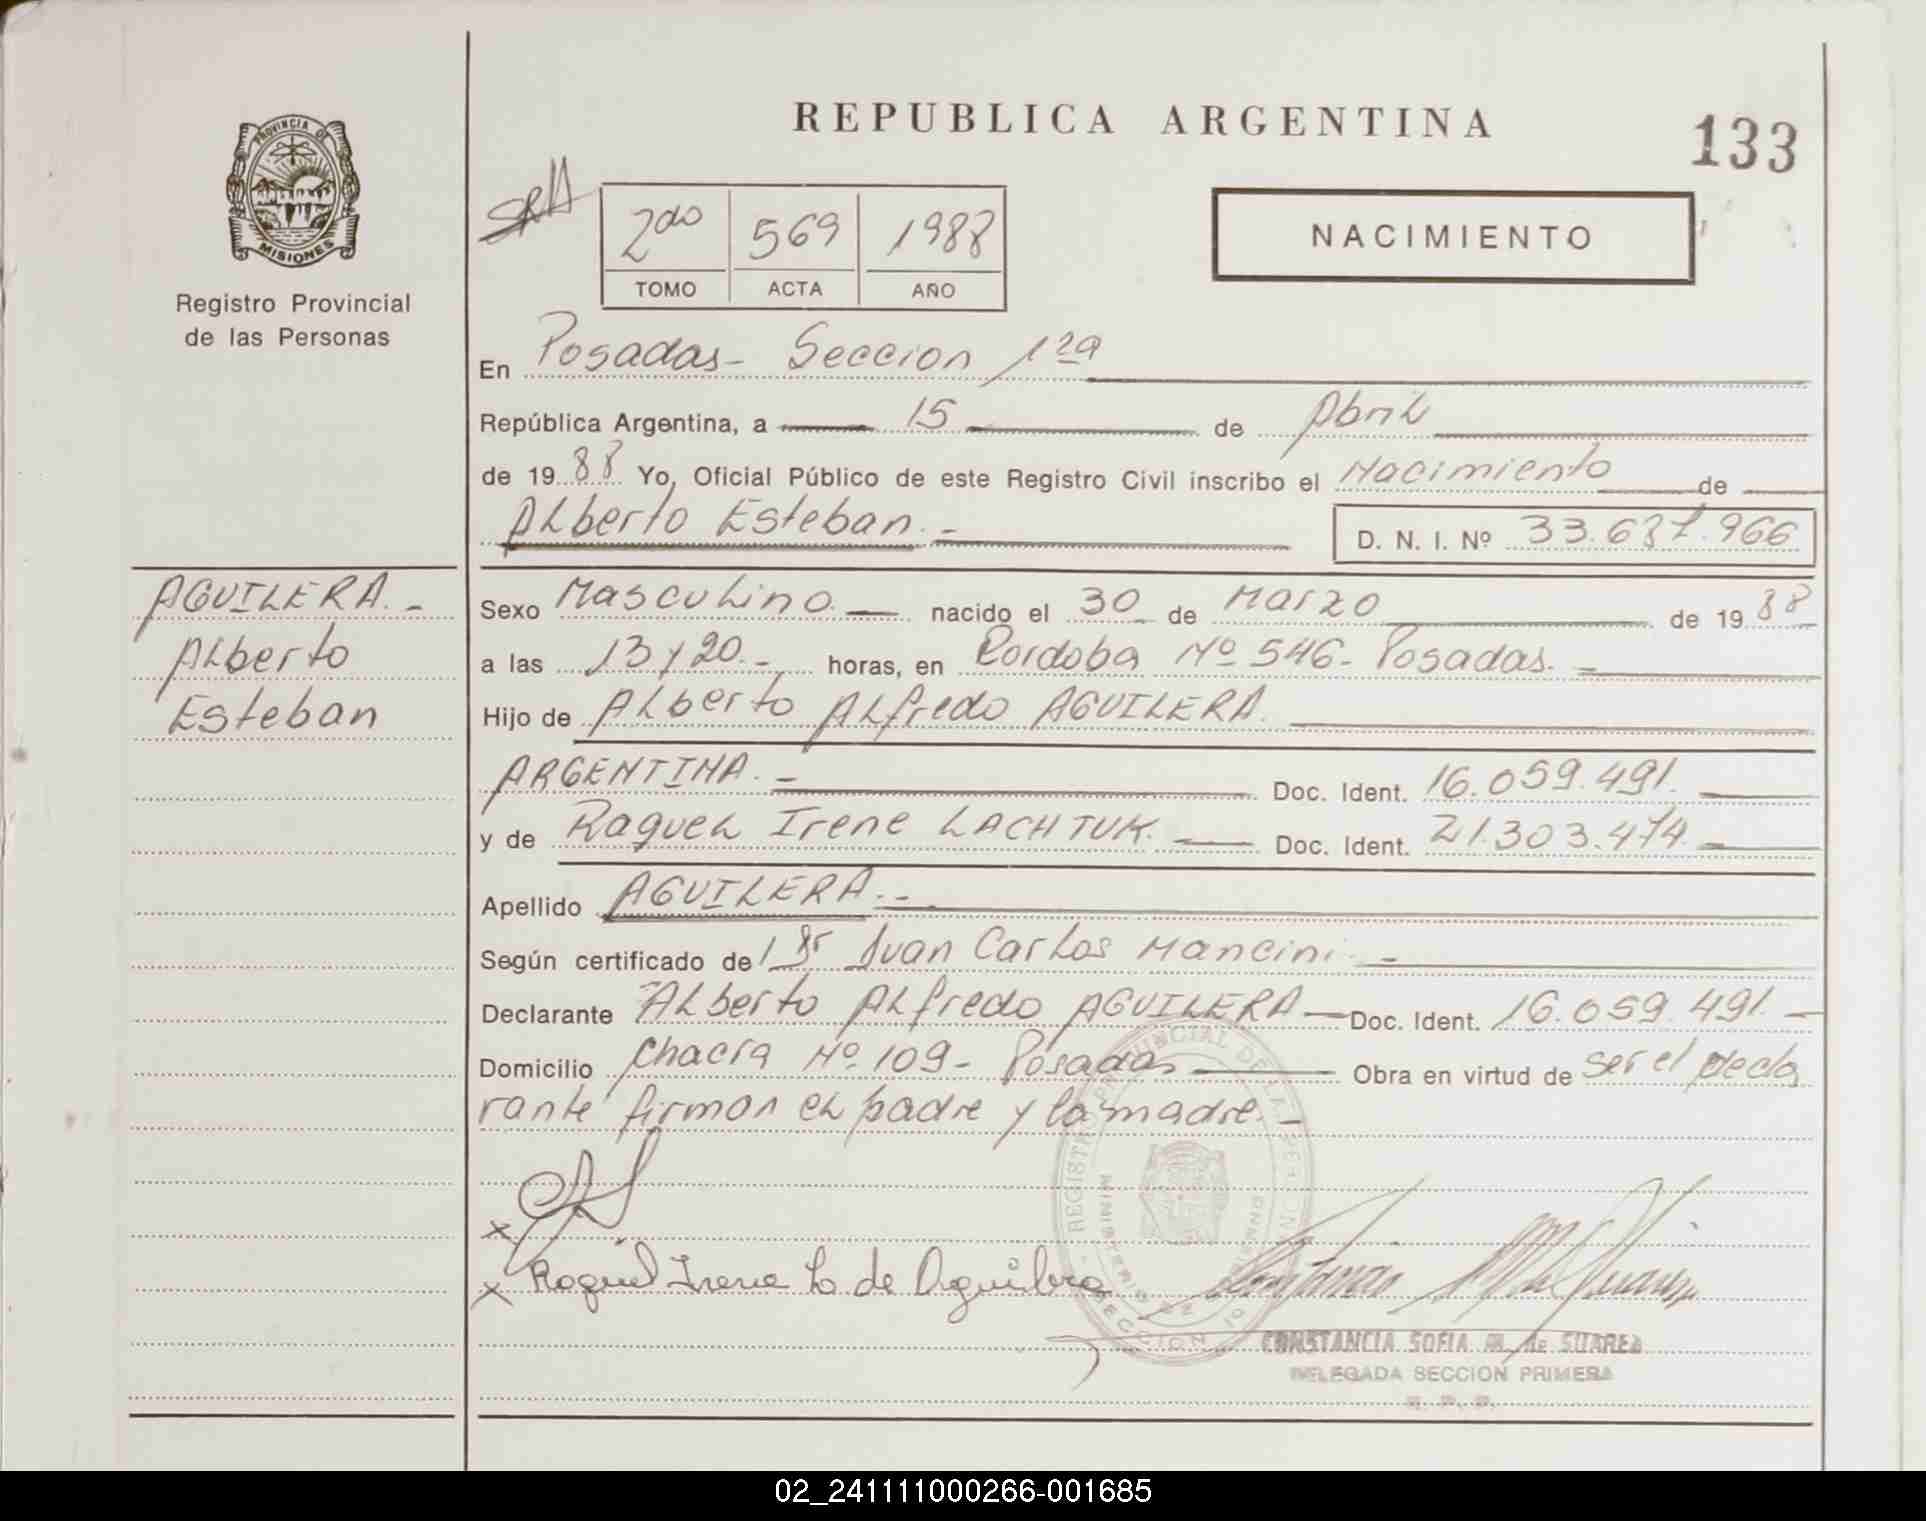 REPUBLICA ARGENTINA
133
PROVINCIA DE
MISIONES
Registro Provincial
de las Personas
2do 569 1988
TOMO ACTA AÑO
NACIMIENTO
En Posadas - Seccion 1ra
República Argentina, a 15 de Abril
de 1988 Yo, Oficial Público de este Registro Civil inscribo el Nacimiento de
Alberto Esteban.-
D. N. I. Nº 33.637.966
AGUILERA.-
Alberto
Esteban
Sexo Masculino. nacido el 30 de Marzo de 1988
a las 13 y 20.- horas, en Cordoba Nº 546- Posadas.-
Hijo de Alberto Alfredo AGUILERA.
ARGENTINA.- Doc. Ident. 16.059.491.
y de Raquel Irene LACHTUK. Doc. Ident. 21.303.474.
Apellido AGUILERA.-
Según certificado de Juan Carlos Mancini.-
Declarante Alberto Alfredo AGUILERA Doc. Ident. 16.059.491.
Domicilio Chacra Nº 109- Posadas Obra en virtud de ser el decla
rante firman el padre y la madre.-
x
x Raquel Irene L de Aguilera
CONSTANCIA SOFIA M. de SUAREZ
DELEGADA SECCION PRIMERA
R. P. P.
02_241111000266-001685